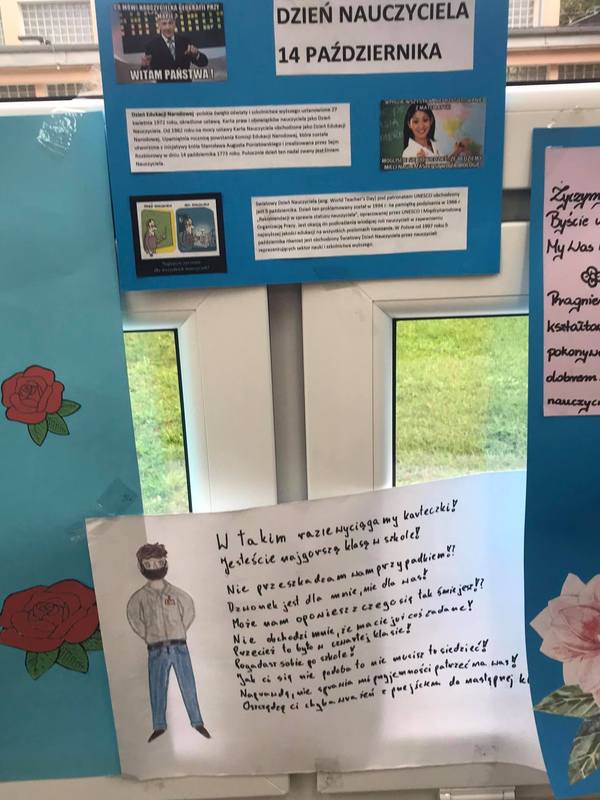 DZIEŃ NAUCZYCIELA
14 PAŹDZIERNIKA
CO MÓWI NAUCZYCIELKA GEOGRAFII PRZY
MAPIE?
WITAM PAŃSTWA!
Dzień Edukacji Narodowej - polskie święto oświaty i szkolnictwa wyższego ustanowione 27
kwietnia 1972 roku, określone ustawą Karta praw i obowiązków nauczyciela jako Dzień
Nauczyciela. Od 1982 roku na mocy ustawy Karta Nauczyciela obchodzone jako Dzień Edukacji
Narodowej. Upamiętnia rocznicę powstania Komisji Edukacji Narodowej, która została
utworzona z inicjatywy króla Stanisława Augusta Poniatowskiego i zrealizowana przez Sejm
Rozbiorowy w dniu 14 października 1773 roku. Potocznie dzień ten nadal zwany jest Dniem
Nauczyciela.
Światowy Dzień Nauczyciela (ang. World Teacher's Day) pod patronatem UNESCO obchodzony
jest 5 października. Dzień ten proklamowany został w 1994 r. na pamiątkę podpisania w 1966 r
„Rekomendacji w sprawie statusu nauczycieli", opracowanej przez UNESCO i Międzynarodową
Organizację Pracy. Jest okazją do podkreślenia wiodącej roli nauczycieli w zapewnianiu
najwyższej jakości edukacji na wszystkich poziomach nauczania. W Polsce od 1997 roku 5
października również jest obchodzony Światowy Dzień Nauczyciela przez nauczycieli
reprezentujących sektor nauki i szkolnictwa wyższego.
Życzym
Byście w
My Was
Pragnie
kształtow
pokonyw
dobrem
nauczyc
W takim razie wyciągamy karteczki!
Jesteście najgorszą klasą w szkole!
Nie przeszkadzam wam przypadkiem!?
Dzwonek jest dla mnie, nie dla was!
Może nam opowiesz z czego się tak śmiejesz!?
Nie obchodzi mnie, że macie już coś zadane!
Przecież to było w czwartej klasie!
Pogadasz sobie po szkole!
Jak ci się nie podoba to nie musisz tu siedzieć!
Naprawdę, nie sprawia mi przyjemności patrzeć na was!
Oszczędzę ci chyba wrażeń z przejściem do następnej kl